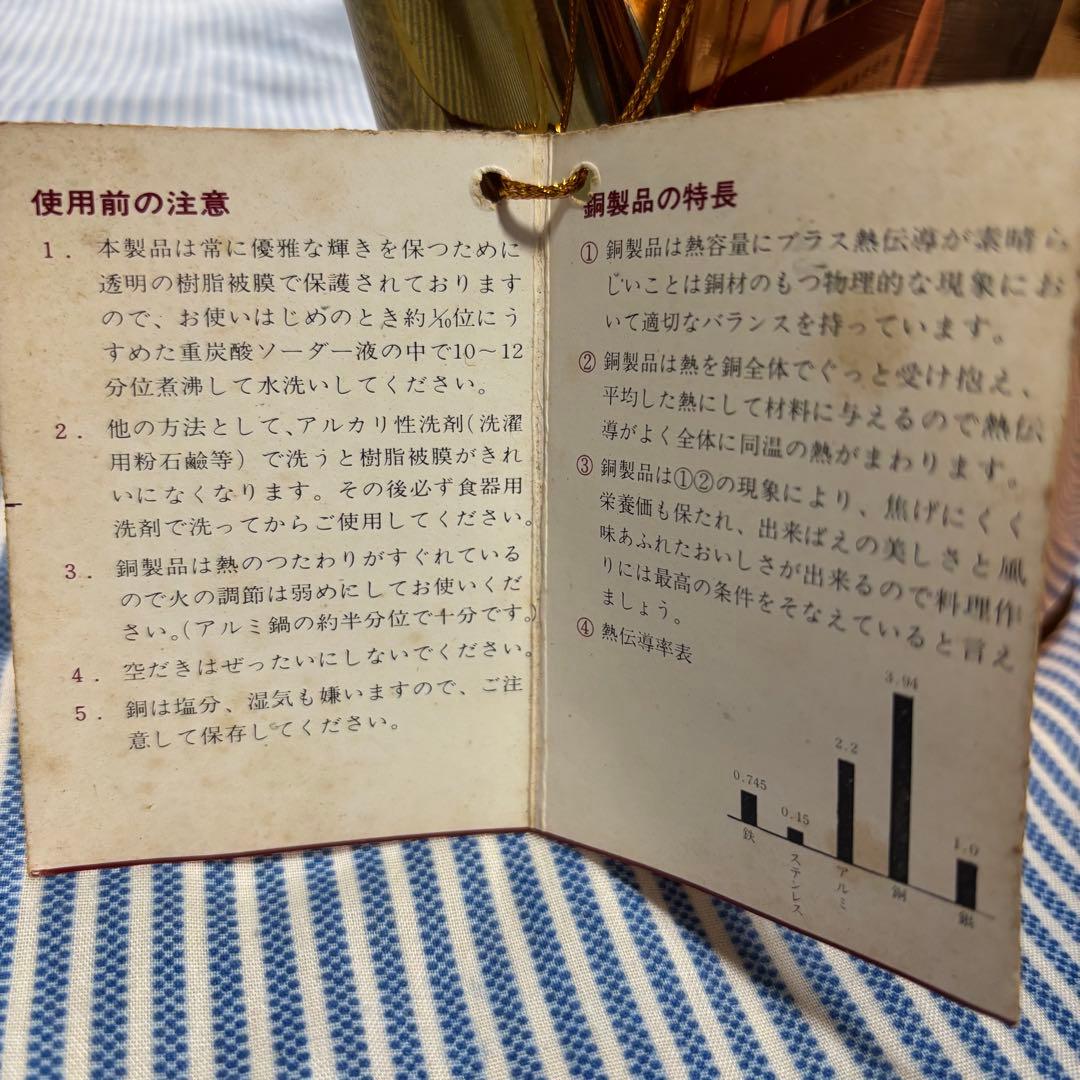 使用前の注意
1. 本製品は常に優雅な輝きを保つために
透明の樹脂被膜で保護されております
ので、お使いはじめのとき約1/10位にう
すめた重炭酸ソーダー液の中で10～12
分位煮沸して水洗いしてください。
2. 他の方法として、アルカリ性洗剤(洗濯
用粉石鹼等)で洗うと樹脂被膜がきれ
いになくなります。その後必ず食器用
洗剤で洗ってからご使用してください。
3. 銅製品は熱のつたわりがすぐれている
ので火の調節は弱めにしてお使いくだ
さい。(アルミ鍋の約半分位で十分です。)
4. 空だきはぜったいにしないでください。
5. 銅は塩分、湿気も嫌いますので、ご注
意して保存してください。
銅製品の特長
① 銅製品は熱容量にプラス熱伝導が素晴ら
しいことは銅材のもつ物理的な現象にお
いて適切なバランスを持っています。
② 銅製品は熱を銅全体でぐっと受け抱え、
平均した熱にして材料に与えるので熱伝
導がよく全体に同温の熱がまわります。
③ 銅製品は①②の現象により、焦げにくく
栄養価も保たれ、出来ばえの美しさと風
味あふれたおいしさが出来るので料理作
りには最高の条件をそなえていると言え
ましょう。
④ 熱伝導率表
0.745
0.45
2.2
3.94
1.0
鉄
ステンレス
アルミ
銅